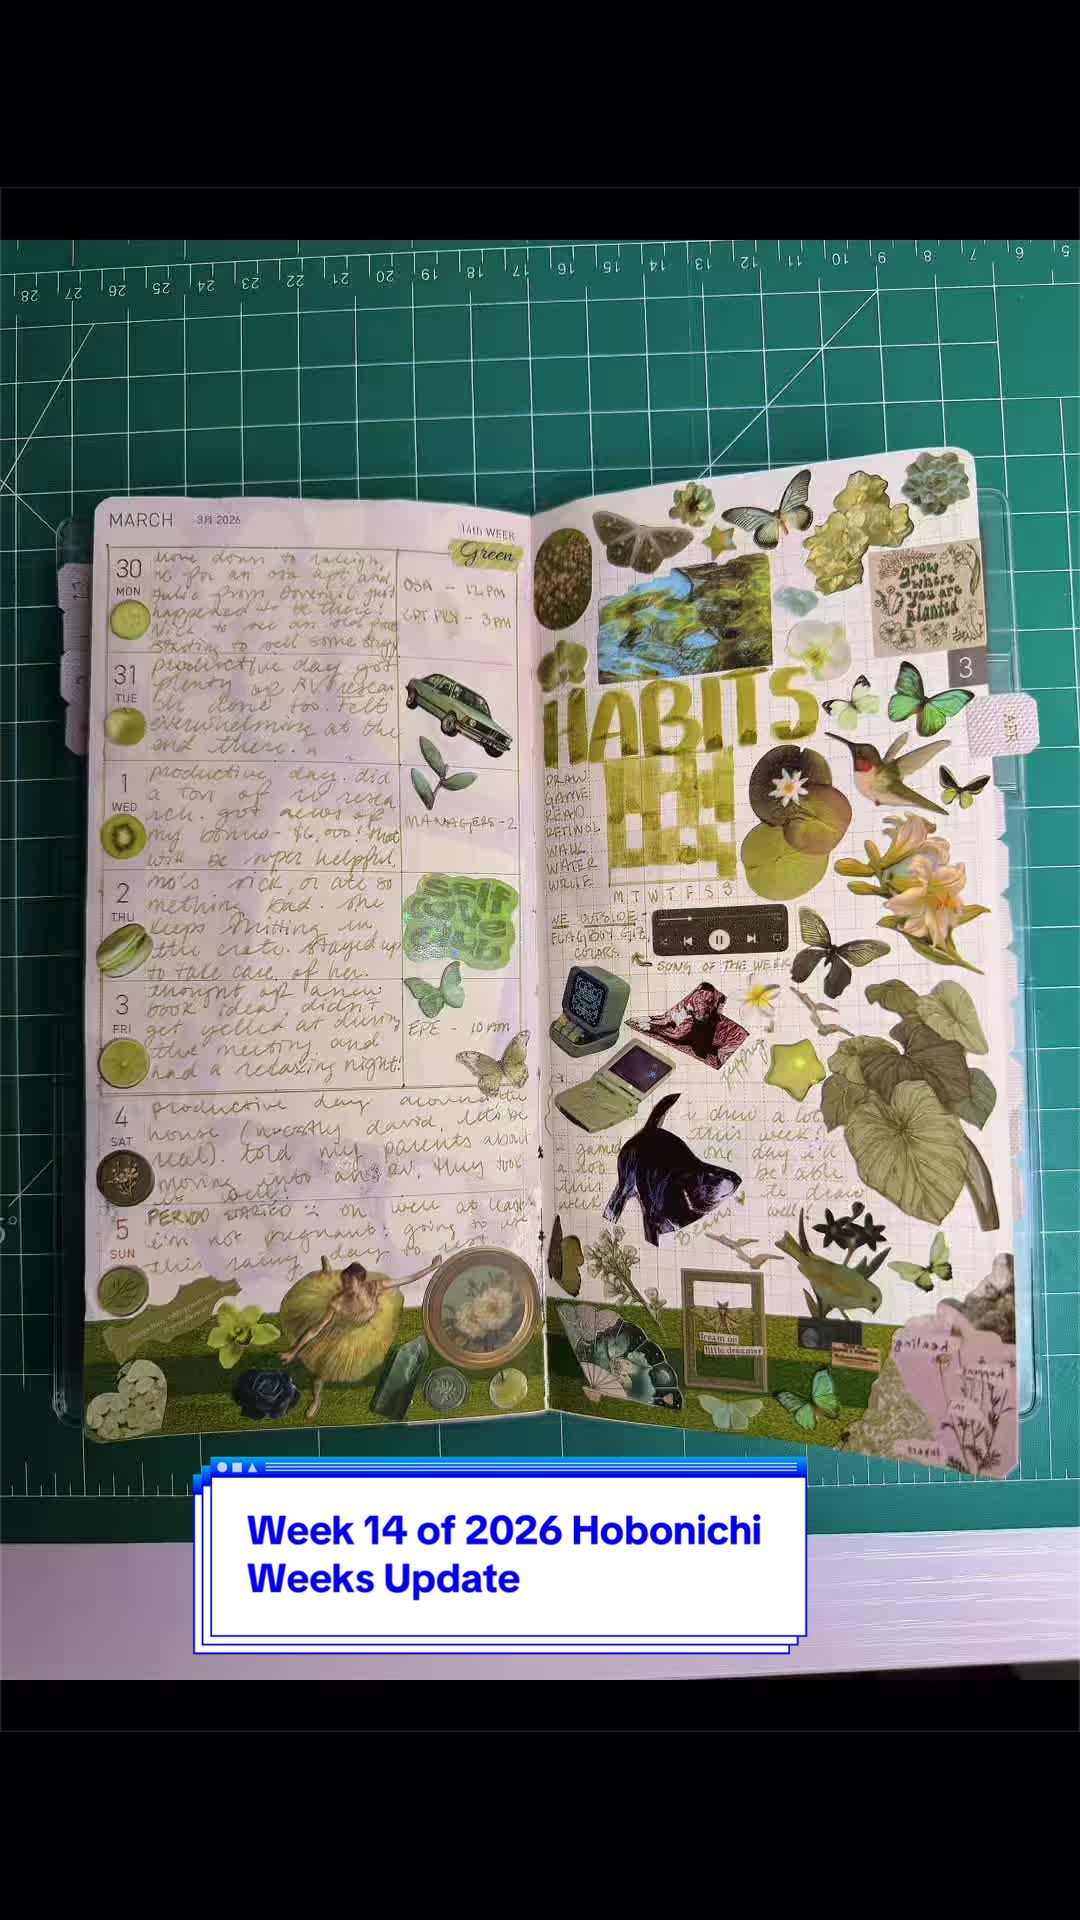 MARCH 3月 2026
14th WEEK
Green
30
MON
move down to raleigh,
happened to be there!
starting to sell some
OSA - 12 PM
- 3 PM
31
TUE
productive day got
plenty of RV resear
ch done too. felt
overwhelming at the
end there.
1
WED
productive day. did
a ton of rv resea
rch. got news of
my bonus - $6,000! that
will be super helpful.
MANAGERS - 2
2
THU
mo's sick, or ate so
mething bad. she
keeps shitting in
the crate. stayed up
to take care of her.
self
love
club
3
FRI
thought of a new
book idea, didn't
get yelled at during
the meeting and
had a relaxing night!
EPE - 10 AM
4
SAT
productive day around the
house (mostly david, let's be
real). told my parents about
moving into an rv. they took
it well!
5
SUN
PERIOD STARTED :- oh well at least
i'm not pregnant! going to use
this rainy day to rest.
grow
where
you are
planted
3
APR
HABITS
DRAW
GAME
READ
RETINOL
WALK
WATER
WRITE
M T W T F S S
WE OUTSIDE -
FLAGBOY GIZ,
COLORS
SONG OF THE WEEK
i drew a lot
this week!
one day i'll
be able
to draw
well!
gamed
a lot
this
week
Beans
dream on
little dreamer
healing
Week 14 of 2026 Hobonichi
Weeks Update